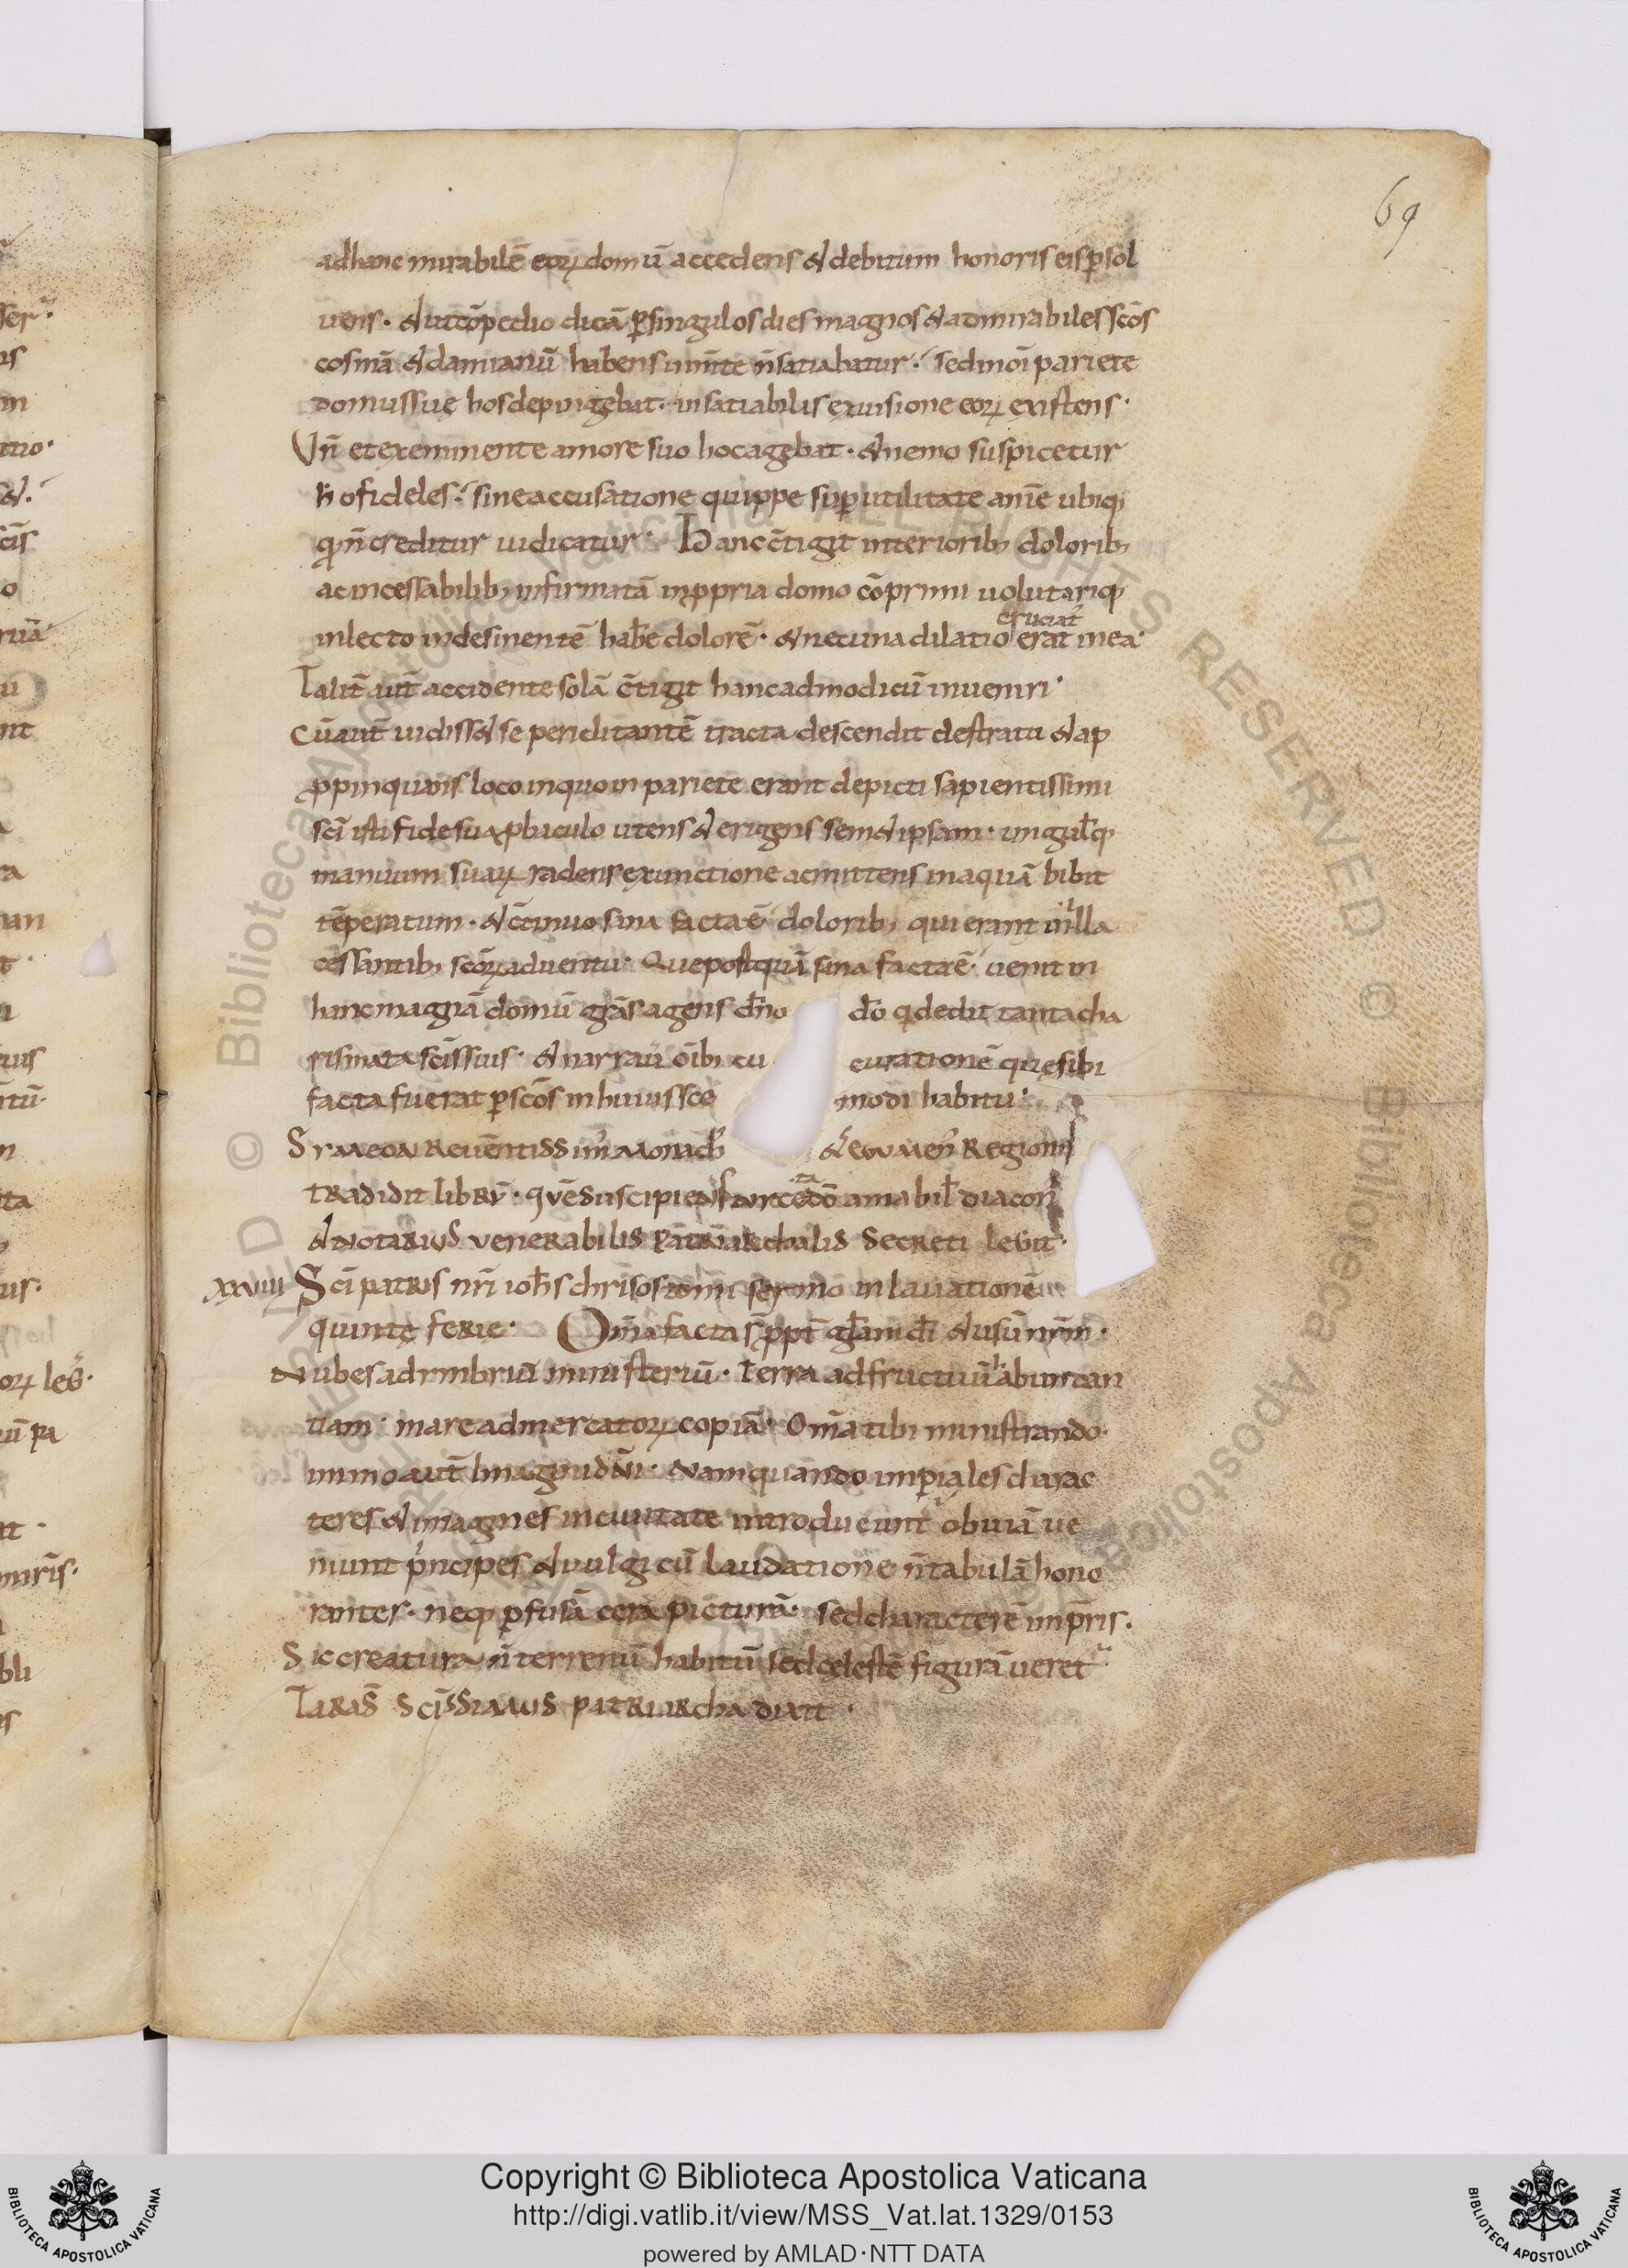 69
adhanc mirabilē eoꝝ domū accedens & debitum honoris eis ꝑsol
uens · & ut cōpedio dicā ꝑ singulos dies magnos & admirabiles sc̄os
cosmā & damianū habens in m̄te n̄ satiabatur · sed in oī pariete
domus suę hos depingebat · insatiabilis ex uisione eoꝝ existens ·
Vn̄ et ex eminente amore suo hoc agebat · & nemo suspicetur
h̄ o fideles · sine accusatione quippe suꝑ utilitate anīe ubiq;
q n̄ creditur uidicatur · Hanc c̄tigit interiorib; dolorib;
ac incessabilib; infirmatā in ꝓpria domo cōprimi uolutariq;
cruciat̉
in lecto indesinentē habe dolorē · & nec una dilatio erat in ea ·
Talit̄ aut̄ accidente solā c̄tigit hanc ad modicū inueniri ·
Cū aut̄ uidiss& se periclitantē tracta descendit de stratu & ap
ꝓpinquans loco in quo in pariete erant depicti sapientissimi
sc̄i isti fide sua ꝓ baculo utens & erigens sem&ipsam · unguib̄q;
manuum suaꝝ radens ex unctione ac mittens in aquā bibit
tēperatum · & c̄tinuo sana facta ē dolorib; qui erant in illa
cessantib; sc̄oꝝ aduentu · Que postquā sana facta ē uenit in
hanc magnā domū gr̄as agens dn̄o do q dedit tanta cha
rismata sc̄is suis · & narrau̅ oīb; cu curationē quę sibi
facta fuerat ꝑ sc̄os in huiusce modi habitu ·
Symeon reuerentissim̉ monach̉ & egumen̉ regionis
ta
tradidit librū · quē suscipiens anc do amabil̄ diacon̉
& notarius venerabilis patriarchalis secreti legit ·
XXVIIII Sc̄i patris nr̄i ioh̄s chrisostomi sermo in lauationē
quintę ferie · Om̄ia facta s̄ ꝓpt̄ gl̄am dī & usū nr̄m ·
Nubes ad imbriū ministeriū · Terra ad fructuū abundan
tiam · mare ad mercatoꝝ copiā · Om̄ia tibi ministrando ·
immo aut̄ imagini dn̄i · Nam quando imꝑiales charac
teres & imagines in ciuitate introducunt̉ obuiā ue
niunt p̉ncipes & uulgi cū laudatione n̄ tabulā hono
rantes · neq; ꝑfusā cera picturā · sed characterē imꝑris ·
Sic creatura n̄ terrenū habitū sed celestē figurā ueret̉
Taras̄ sc̄issimus patriarcha dixit ·
Copyright © Biblioteca Apostolica Vaticana
http://digi.vatlib.it/view/MSS_Vat.lat.1329/0153
powered by AMLAD·NTT DATA